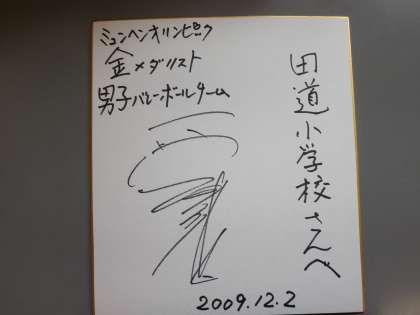 ミュンヘンオリンピック
金メダリスト
男子バレーボールチーム
田道小学校さんへ
2009.12.2